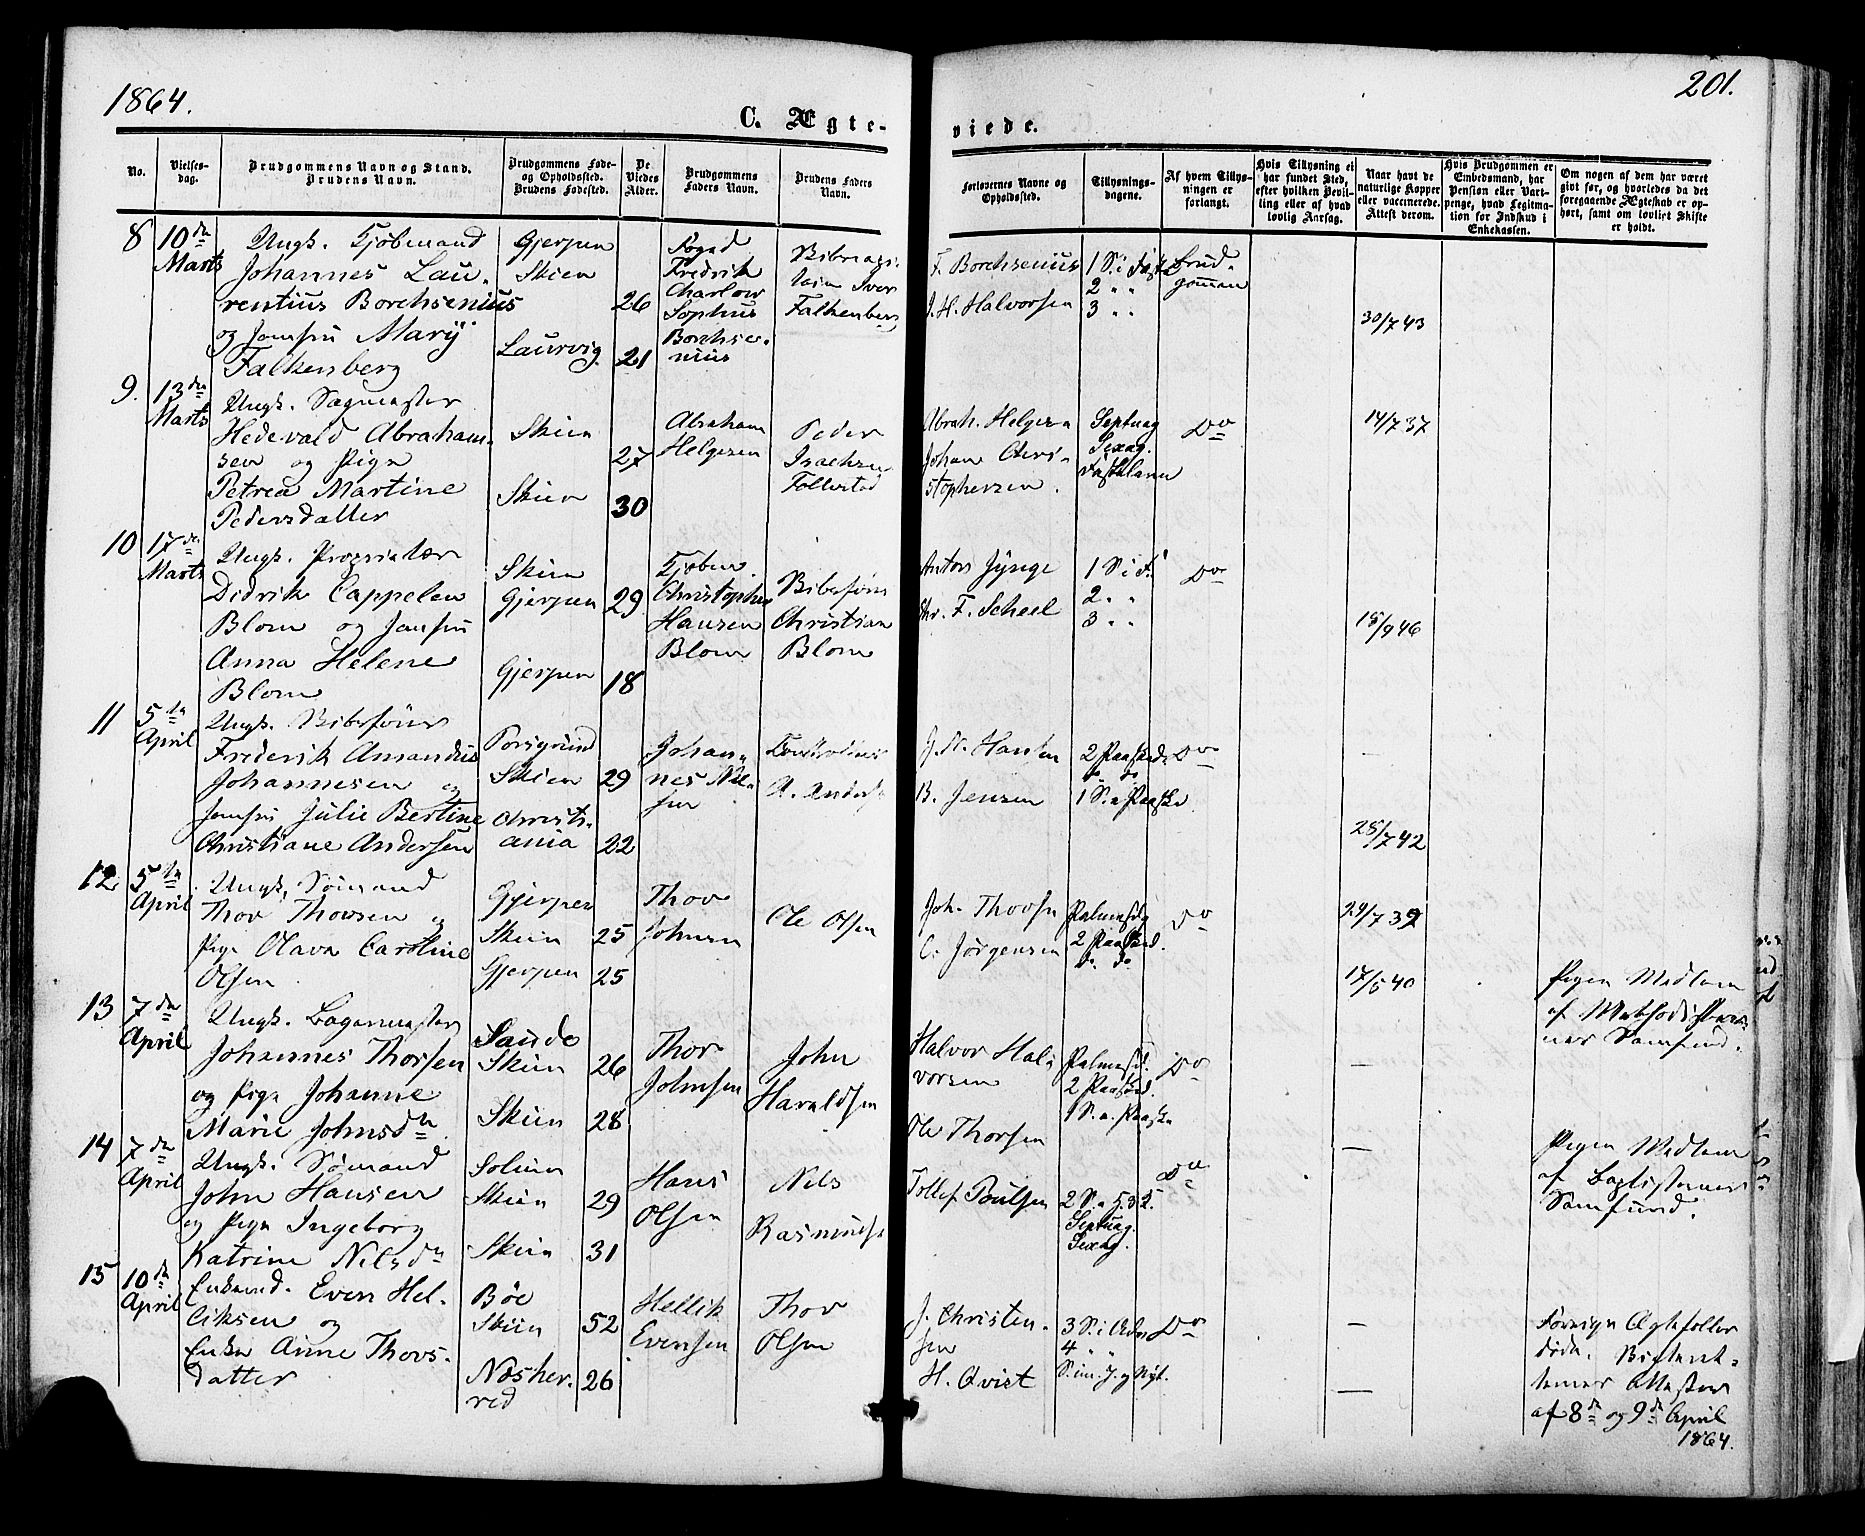 1864.
201.
C. Ægte-
viede.
No.
Vielses-
dag.
Brudgommens Navn og Stand.
Brudens Navn.
Brudgommens Føde-
og Opholdssted.
Brudens Fødested.
De
Viedes
Alder.
Brudgommens
Faders Navn.
Brudens Faders
Navn.
Forlovernes Navne og
Opholdssted.
Tillysnings-
dagene.
Af hvem Tillys-
ningen er
forlangt.
Hvis Tillysning ei
har fundet Sted,
efter hvilken Bevil-
ling eller af hvad
lovlig Aarsag.
Naar havt de
naturlige Kopper
eller vaccinerede.
Attest derom.
Hvis Brudgommen er
Embedsmand, har
Pension eller Vart-
penge, hvad Legitima-
tion for Indskud i
Enkekassen.
Om nogen af dem har været
givt før, og hvorledes da det
foregaaende Ægteskab er op-
hørt, samt om lovligt Skifte
er holdt.
8
10de
Marts
Ungk. Kjøbmand
Johannes Lau-
rentius Borchsenius
og Jomfru Mary
Falkenberg
Gjerpen
Skien
Laurvig
26
21
Foged
Fredrik
Sophus
Borchse-
nius
Iver
Falkenberg
F. Borchsenius
J. H. Halvorsen
1 S. i Faste
2 " "
3 " "
Brud-
gommen
30/7 43
9.
13de
Marts
Ungk. Sagmester
Hedevald Abraham-
sen og Pige
Petrea Martine
Pedersdatter
Skien
Skien
27
30
Abraham
Helgesen
Peder
Isachsen
Follestad
Abrah. Helgesen
Johan Chri-
stophersen.
Septuag
Sexag.
Fastelavn
Do
14/7 37
10
17de
Marts
Ungk. Proprietær
Didrik Cappelen
Blom og Jomfru
Anna Helene
Blom
Skien
Gjerpen
Gjerpen
29
18
Kjøbm.
Christopher
Hansen
Blom
Christian
Blom
Anton Jynge
Chr. F. Scheel
1 S. i F.
2 " "
3 " "
Do
18/9 46
11
5te
April
Ungk.
Frederik Amandus
Johannesen og
Jomfru Julie Bertine
Christiane Andersen
Porsgrund
Skien
Christi-
ania
29
22
Johan-
nes Niel-
sen
A. Anders.
Hansen
B. Jensen
2 Paaskedag
do. do.
1 S. e Paaske
Do
—
25/7 42
12.
5te
April
Ungk. Sømand
Thov Thovsen og
Pige Olava Caroline
Olsen
Gjerpen
Skien
Gjerpen
25
25
Thov
Johnsen
Ole Olsen
Joh. Thovsen
C. Jørgensen
Palmesdg
2 Paasked.
do. do.
Do
29/7 39
17/5 40
Pigen Medlem
af Methodister-
nes Samfund.
13
7de
April
Ungk. Bagermester
Johannes Thorsen
og Pige Johanne
Marie Johnsdtr
Saude
Skien
Skien
26
28
Thor
Johnsen
John
Haraldsen
Halvor Hal-
vorsen
Ole Thorsen
Palmesd.
2 Paasked.
1 S. e. Paaske
Do
—
—
14
7de
April
Ungk. Sømand
John Hansen
og Pige Ingeborg
Katrine Nilsdtr
Solum
Skien
Skien
29
31
Hans
Olsen
Nils
Rasmussen
Tollef Poulsen
Septuag.
Sexag.
Do
Pigen Medlem
af Baptisternes
Samfund.
15
10de
April
Enkemd. Even Hel-
liksen og
Enke Anne Thovs-
datter
Bøe
Skien
Næsher-
red
52
26
Hellik
Evensen
Thov
Olsen
J. Christen-
sen
H. Qvist
Do
—
—
Forrige Ægtefeller
døde.
Attester
af 8de og 9de April
1864.